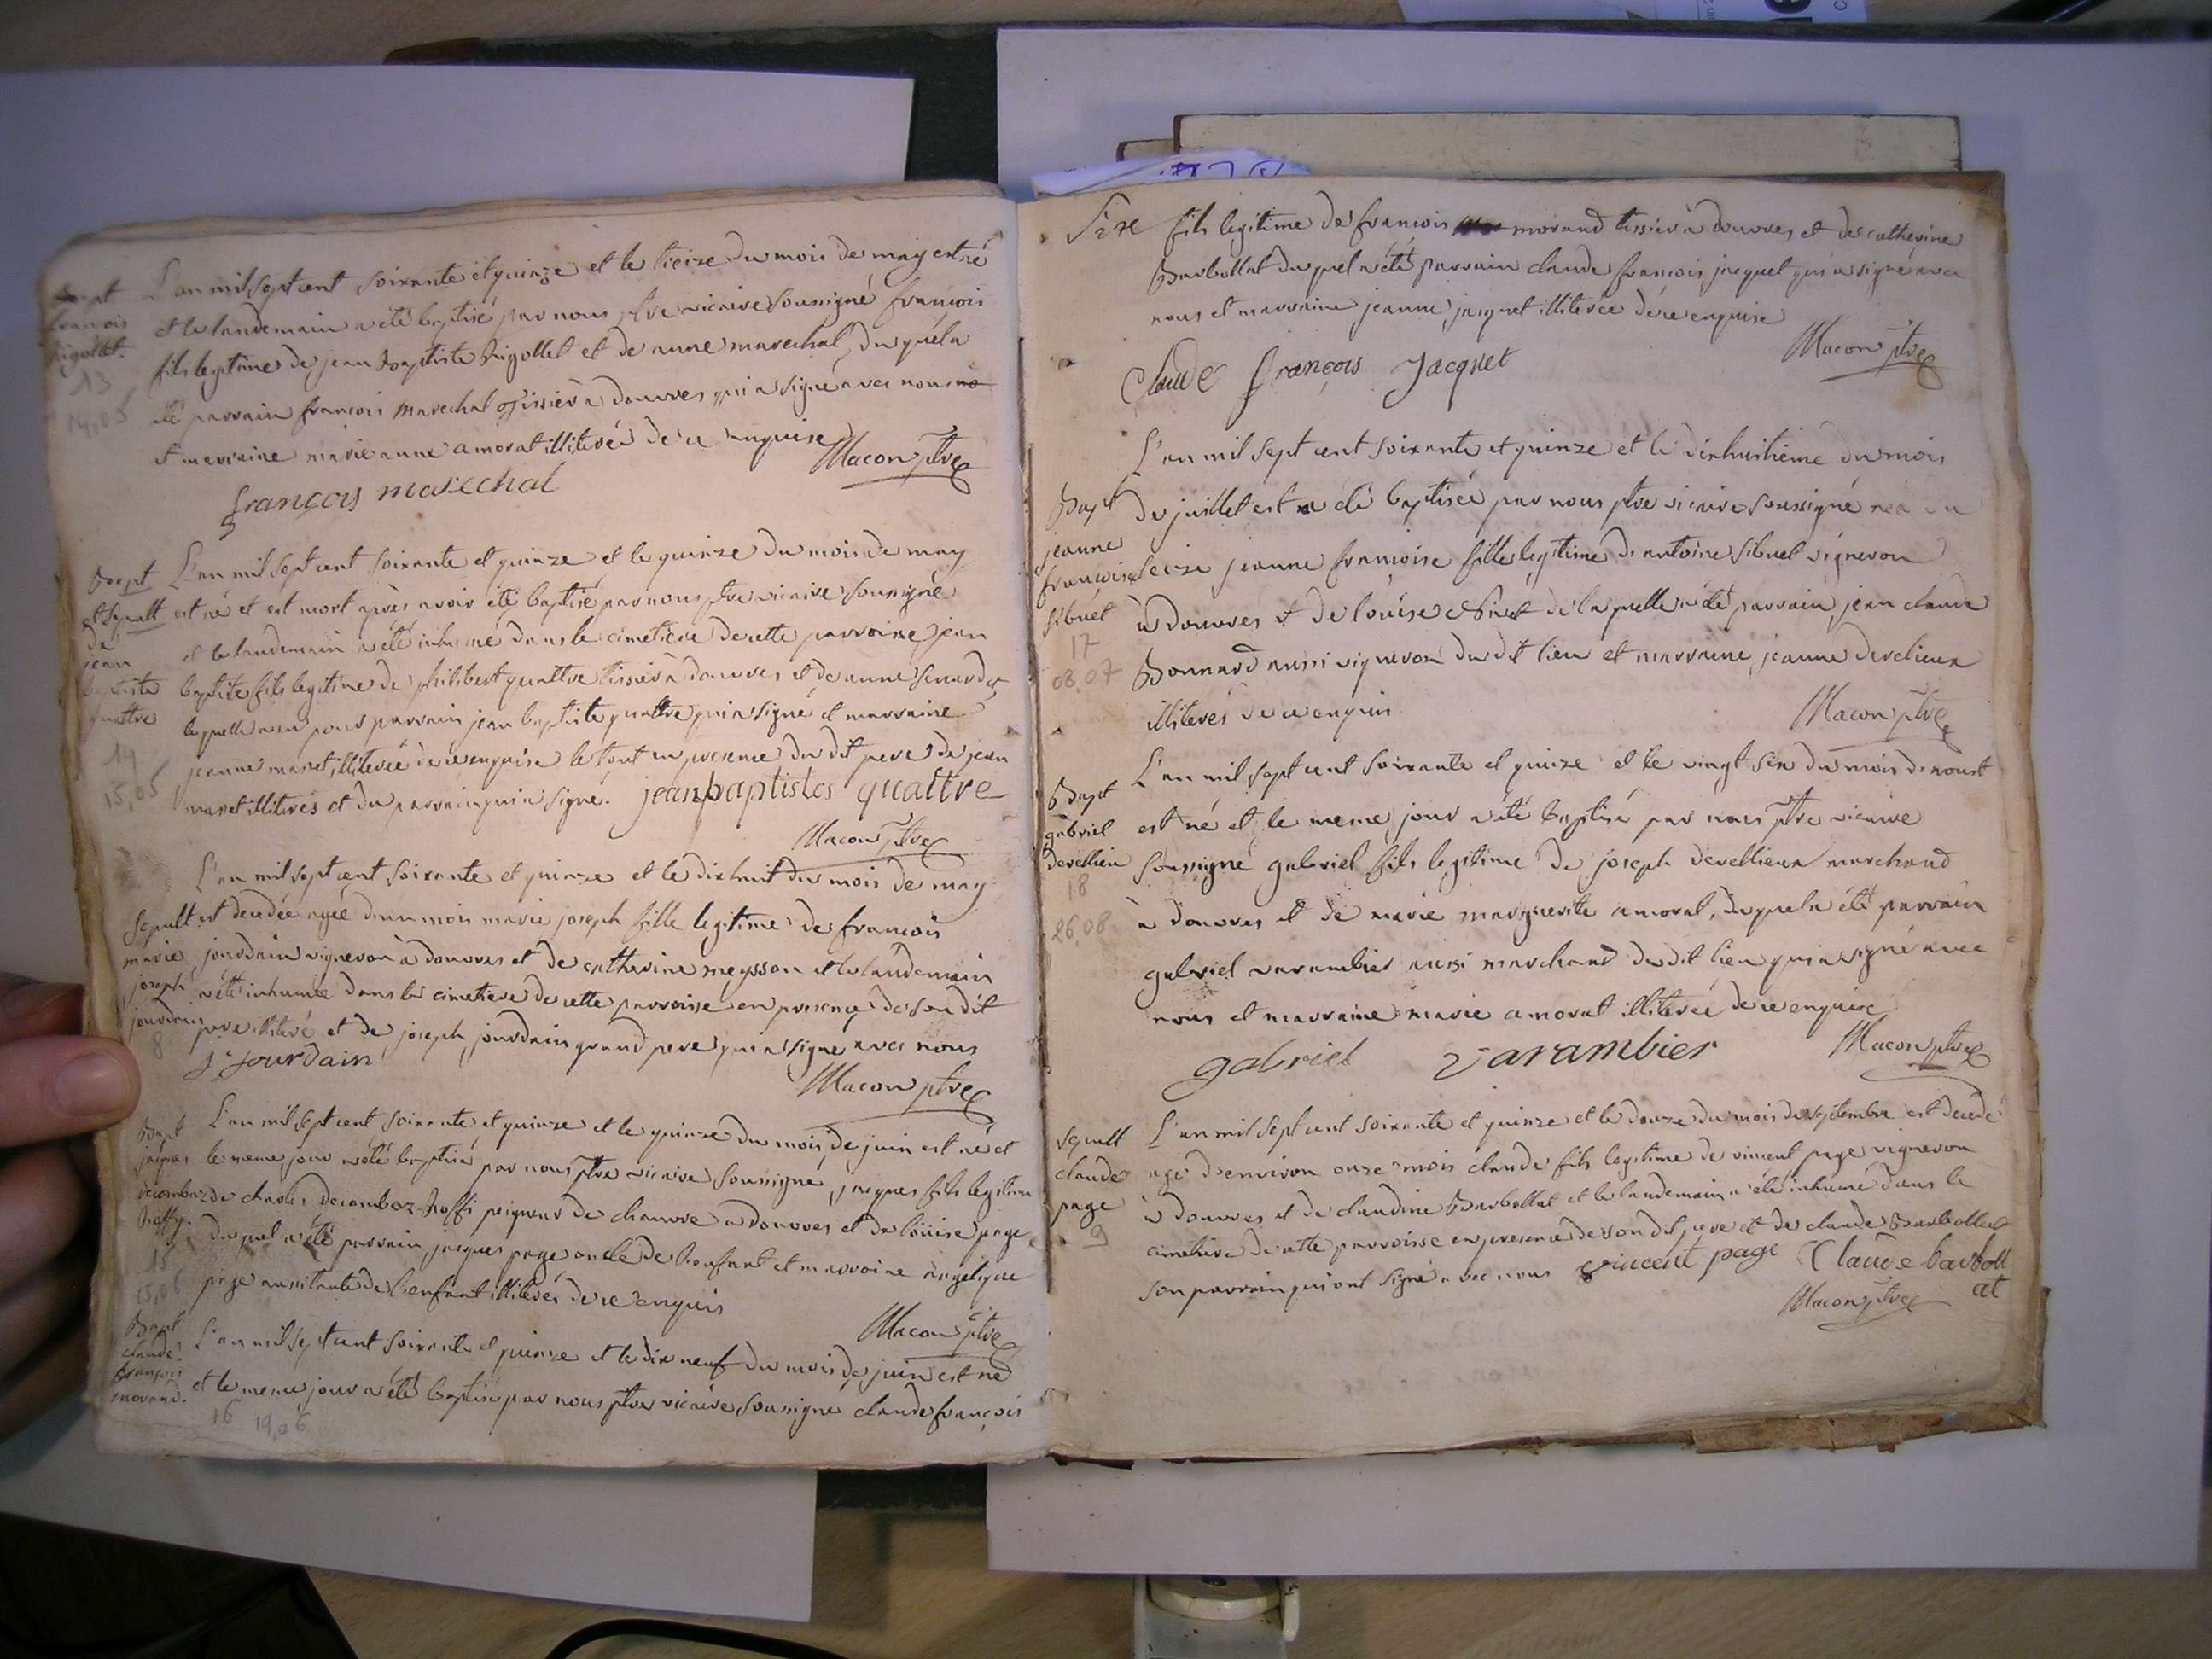 Bapt
francois
Rigollet.
13
14,05
L'an mil sept cent soixante et quinze et le treize du mois de may est né
et le landemain a été baptisé par nous ptre vicaire soussigné françois
fils legitime de jean baptiste Rigollet et de anne marechal, du quel a
été parrain francois marechal tissier à douvres qui a signé avec nous
et marraine marie anne amorat illiterée de ce enquise
Macon ptre
françois marechal
Bapt
et sepult
de
jean
baptiste
quattre
14
15,05
L'an mil sept cent soixante et quinze et le quinze du mois de may
est né et est mort après avoir été baptisé par nous ptre vicaire soussigné
et le landemain a été inhumé dans le cimetiere de cette parroisse jean
baptiste fils legitime de philibert quattre tissier à douvres et de anne
lequelle a eu pour parrain jean baptiste quattre qui a signé et marraine
jeanne maret illiterée de ce enquise le tout en presence du dit pere de jean
maret illiterés et du parrain qui a signé. jean baptistes quattre
Macon ptre
Sepult
marie
joseph
jourdain
8
L'an mil sept cent soixante et quinze et le dix huit du mois de may
est decedée agée d'un mois marie joseph fille legitime de francois
jourdain vigneron à douvres et de catherine meysson et le landemain
a été inhumée dans le cimetiere de cette parroisse en presence de son dit
pere illiteré et de joseph jourdain grand pere qui a signé avec nous
J Jourdain
Macon ptre
Bapt
jaques
decombaz
Roffy.
15
15,06
L'an mil sept cent soixante et quinze et le quinze du mois de juin est né et
le meme jour a été baptisé par nous ptre vicaire soussigné jacques fils legitime
de charles decombaz Roffi peigneur de chanvre a douvres et de louise page
du quel a été parrain jacques page oncle de l'enfant et marraine angelique
page aussi tante de l'enfant illiterés de ce enquis
Macon ptre
Bapt
claude
françois
morand.
16 19,06
L'an mil sept cent soixante et quinze et le dix neuf du mois de juin est né
et le meme jour a été baptisé par nous ptre vicaire soussigné claude françois
fils legitime de francois morand tissier à douvres et de catherine
Barbollat du quel a été parrain claude francois jacquet qui a signé avec
nous et marraine jeanne jacquet illiterée de ce enquise
Macon ptre
Claude françois Jacquet
Bapt
jeanne
françoise
sibuet
17
08,07
L'an mil sept cent soixante et quinze et le dixhuitième du mois
de juillet est a été baptisée par nous ptre vicaire soussigné née du
seize jeanne francoise fille legitime de antoine sibuet vigneron
à douvres et de louise de la quelle a été parrain jean claude
Bonnard aussi vigneron du dit lieu et marraine jeanne devclieux
illiterés de ce enquis
Macon ptre
Bapt
gabriel
devellieu
18
26,08
L'an mil sept cent soixante et quinze et le vingt six du mois d'aoust
est né et le meme jour a été baptisé par nous ptre vicaire
soussigné gabriel fils legitime de joseph devellieux marchand
à douvres et de marie marguerite amorat, du quel a été parrain
gabriel varambier aussi marchand du dit lieu qui a signé avec
nous et marraine marie amorat illiterée de ce enquise
Macon ptre
gabriel varambier
Sepult
claude
page
9
L'an mil sept cent soixante et quinze et le douze du mois de septembre est decedé
agé d'environ onze mois claude fils legitime de vincent page vigneron
à douvres et de claudine Barbollat et le landemain a été inhumé dans le
cimetiere de cette parroisse en presence de son dit pere et de claude Barbollat
son parrain qui ont signé avec nous vincent page Claude barboll
at
Macon ptre